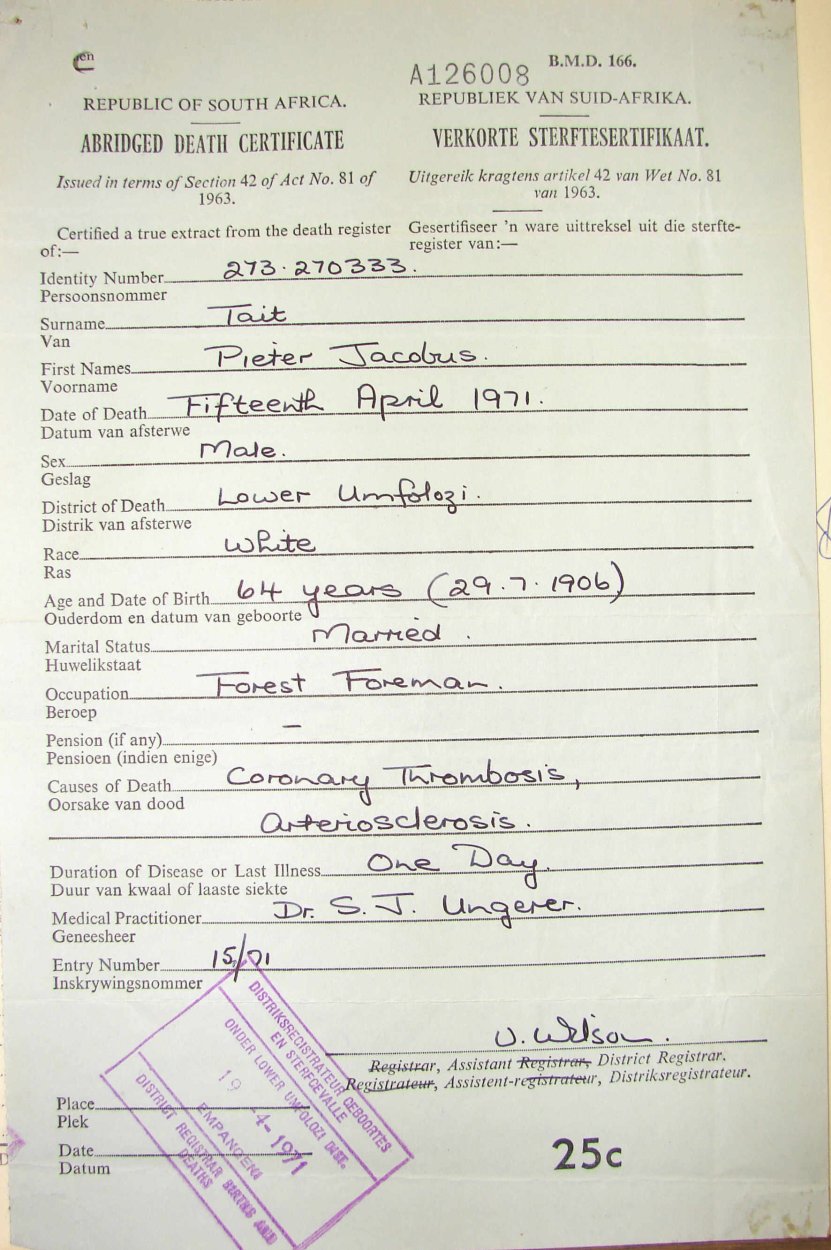 en
A126008 B.M.D. 166.
REPUBLIC OF SOUTH AFRICA.
REPUBLIEK VAN SUID-AFRIKA.
ABRIDGED DEATH CERTIFICATE
VERKORTE STERFTESERTIFIKAAT.
Issued in terms of Section 42 of Act No. 81 of
1963.
Uitgereik kragtens artikel 42 van Wet No. 81
van 1963.
Certified a true extract from the death register
of:—
Gesertifiseer 'n ware uittreksel uit die sterfte-
register van:—
Identity Number 273.270333.
Persoonsnommer
Surname Tait
Van
First Names Pieter Jacobus.
Voorname
Date of Death Fifteenth April 1971.
Datum van afsterwe
Sex Male.
Geslag
District of Death Lower Umfolozi.
Distrik van afsterwe
Race White
Ras
Age and Date of Birth 64 years (29.7.1906)
Ouderdom en datum van geboorte
Marital Status Married.
Huwelikstaat
Occupation Forest Foreman.
Beroep
Pension (if any) —
Pensioen (indien enige)
Causes of Death Coronary Thrombosis,
Oorsake van dood
Arteriosclerosis.
Duration of Disease or Last Illness One Day.
Duur van kwaal of laaste siekte
Medical Practitioner Dr. S. J. Ungerer.
Geneesheer
Entry Number 15/71
Inskrywingsnommer
Wilson.
Registrar, Assistant Registrar, District Registrar.
Registrateur, Assistent-registrateur, Distriksregistrateur.
Place
Plek
Date
Datum
25c
DISTRIKSREGISTRATEUR GEBOORTES
EN STERFGEVALLE
ONDER LOWER UMFOLOZI DIST.
19 -4- 1971
EMPANGENI
DISTRICT REGISTRAR BIRTHS AND
DEATHS